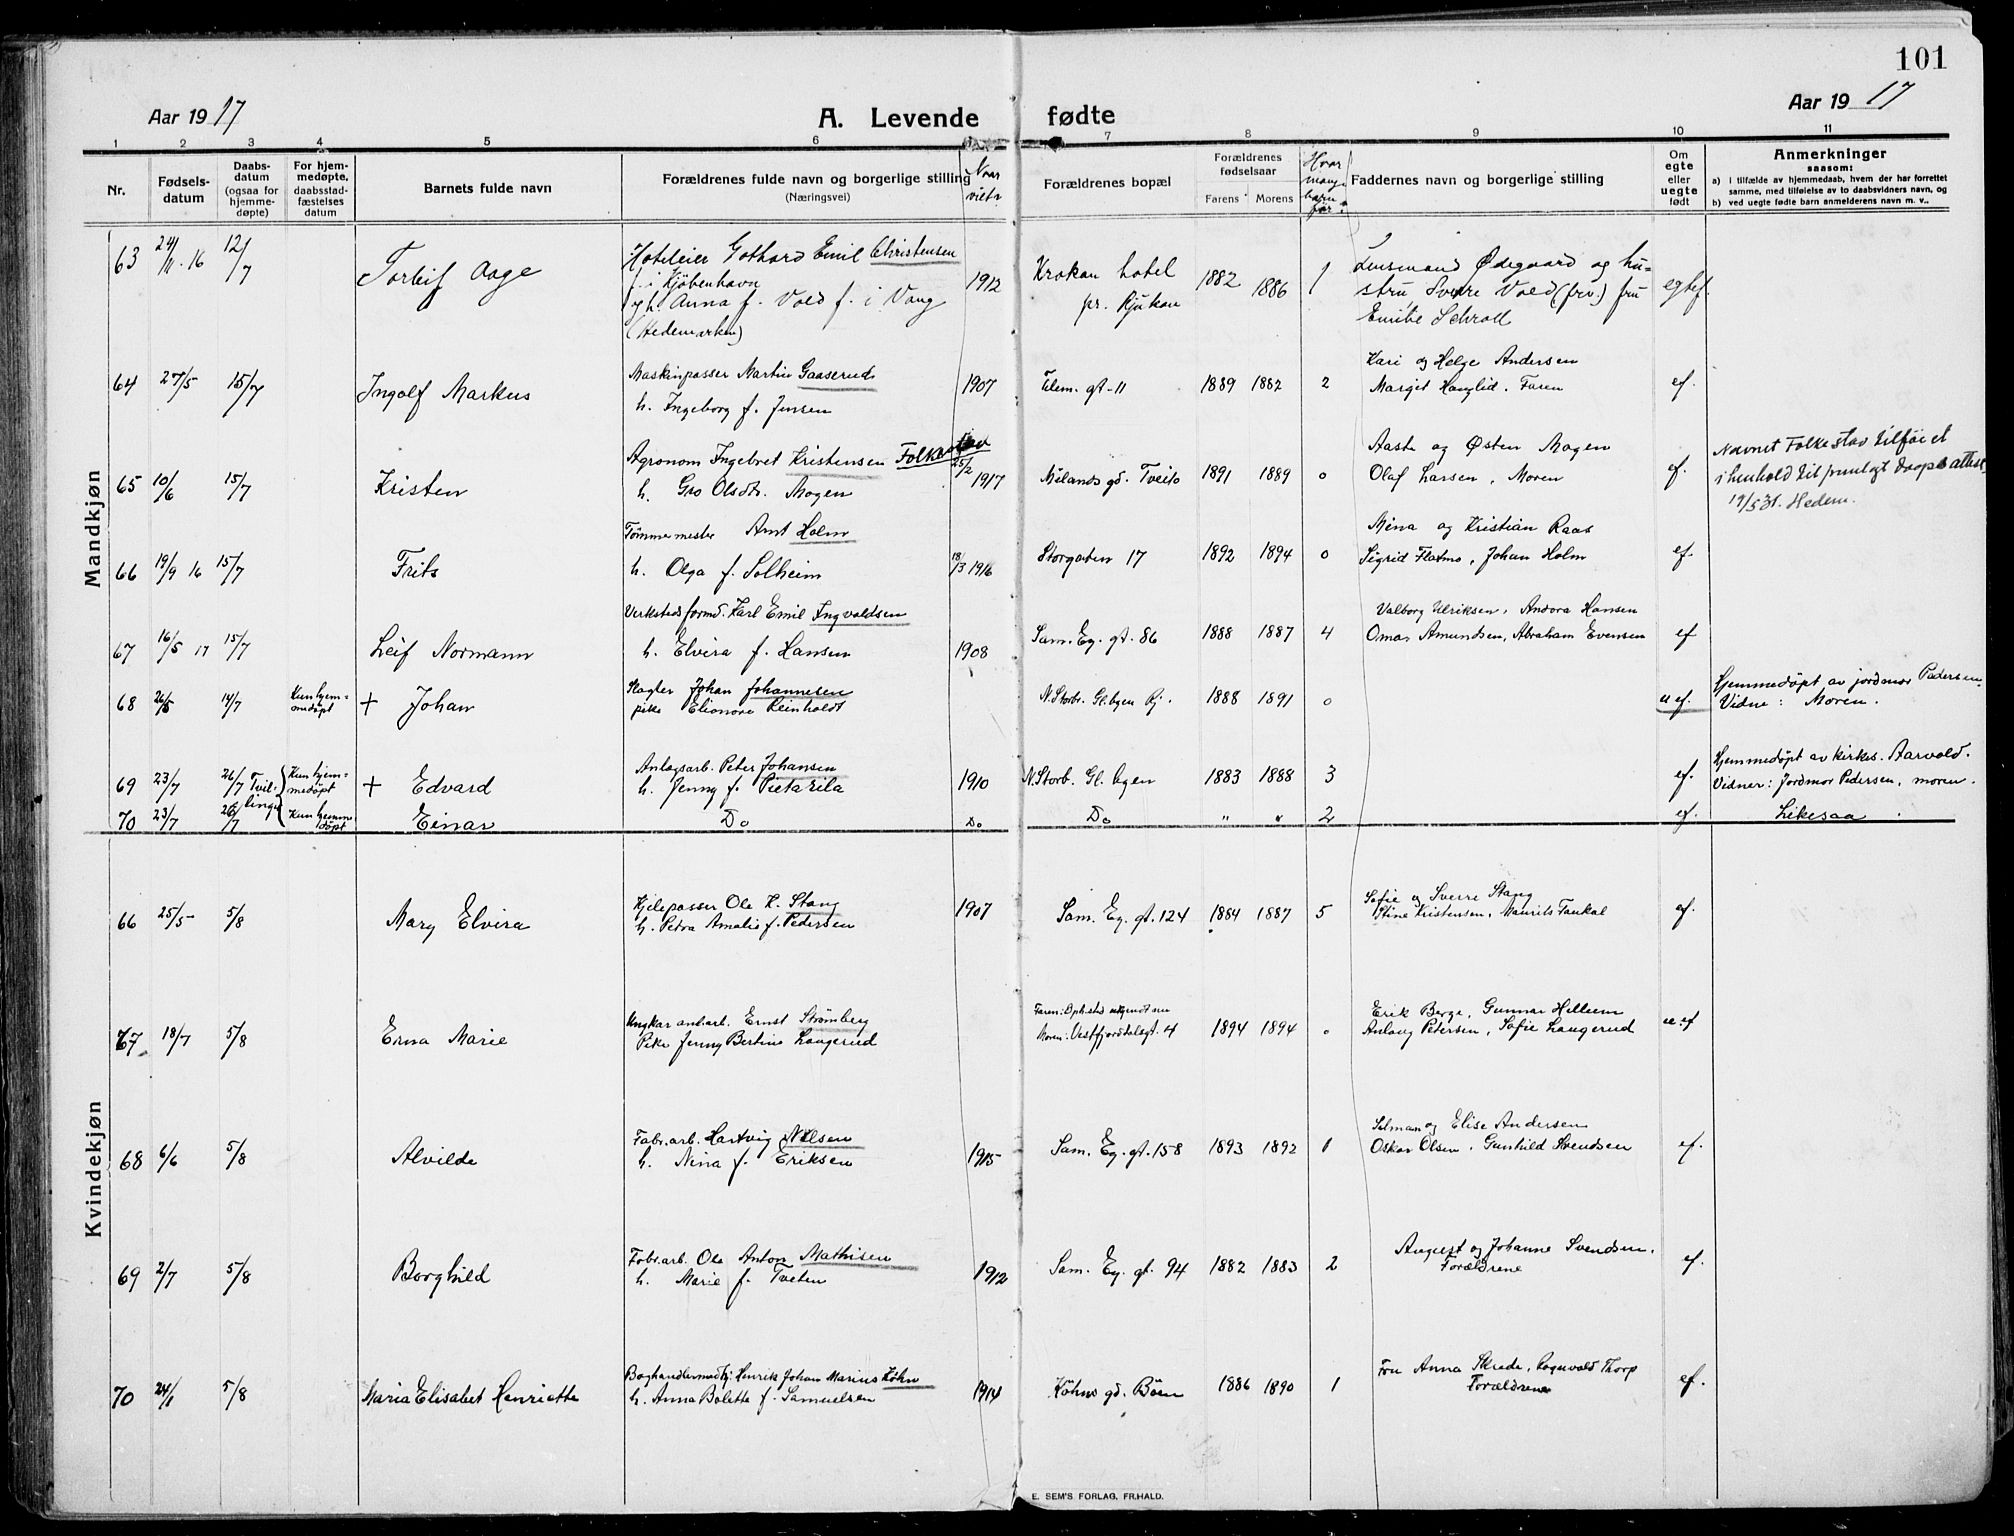 101
Aar 1917 A. Levende fødte Aar 1917
1 2 3 4 5 6 7 8 9 10 11
Nr. Fødselsdatum Daabsdatum (ogsaa for hjemmedøpte) For hjemmedøpte, daabsstadfæstelses datum Barnets fulde navn Forældrenes fulde navn og borgerlige stilling (Næringsvei) Naar viet Forældrenes bopæl Forældrenes fødselsaar Farens Morens Hvor mange barn før. Faddernes navn og borgerlige stilling Om egte eller uegte født Anmerkninger saasom:
a) i tilfælde av hjemmedaab, hvem der har forrettet samme, med tilføielse av to daabsvidners navn, og
b) ved uegte fødte barn anmelderens navn m. v..
Mandkjøn
63 24/11.16 12/7 Torleif Aage Hoteleier Gothard Emil Christensen
f. i Kjøbenhavn
og h. Anna f. Vold f. i Vang
(Hedemarken) 1912 Krokan hotel
pr. Rjukan 1882 1886 1 Lensmand Ødegaard og hu=
stru, Sverre Vold (prv.) fru
Emilie Schroll egtef.
64 27/5 15/7 Ingolf Markus Maskinpasser Martin Gaaserud
h. Ingeborg f. Jensen 1907 Tlem. gt. 11 1889 1882 2 Kari og Helge Andersen
Margit Hauglid. Faren ef.
65 10/6 15/7 Kristen Agronom Ingebret Kristensen Folkestav
h. Gro Olsdtr. Mogen 25/2 1917 Milands gd. Tveito 1891 1889 0 Aaste og Østen Mogen
Olaf Larsen, Moren ef. Navnet Folkestav tilføiet
i henhold til fremlagt daapsattest
19/5 31. Hedem.
66 19/9 16 15/7 Frits Tømmermester Arnt Holm
h. Olga f. Solheim 18/3 1916 Storgaten 17 1892 1894 0 Mina og Kristian Raas
Sigrid Flatmo, Johan Holm ef.
67 16/5 17 15/7 Leif Normann Verkstedsformd. Karl Emil Ingvaldsen
h. Elvira f. Hansen 1908 Sam. Eg. gt. 86 1888 1887 4 Valborg Ulriksen, Andora Hansen
Omar Amundsen, Abraham Evensen ef
68 26/5 14/7 Kun hjem=
medøpt + Johan Slagter Johan Johannesen
pike Elionore Reinholdt N. Storbr. Gl. byen Rj. 1888 1891 0 u ef. Hjemmedøpt av jordmor Pedersen.
Vidne: Moren.
69 23/7 26/7 Tvil- Kun hjem=
medøpt + Edvard Anlægsarb. Peter Johansen
h. Jenny f. Pietarila 1910 N. Storb. Gl. byen 1883 1888 3 ef. Hjemmedøpt av kirkes. Aarvold.
Vidner: Jordmor Pedersen, moren.
70 23/7 26/7 linger Kun hjemm
døpt Einar Do Do Do " " 2 ef. Likesaa.
Kvindekjøn
66 25/5 5/8 Mary Elvira Kjelepasser Ole K. Stang
h. Petra Amalie f. Pedersen 1907 Sam. Eg. gt. 124 1884 1887 5 Sofie og Sverre Stang
Stine Kristensen, Maurits Faukal ef.
67 18/7 5/8 Erna Marie Ungkar anl.arb. Ernst Strømberg
Pike Jenny Bertine Laugerud Faren: Oph.sted ukjendt
Moren: Vestfjorddalsgt. 4 1894 1894 0 Erik Berge, Gunnar Hellum
Anlaug Petersen, Sofie Laugerud u. ef
68 6/6 5/8 Alvilde Fabr.arb. Hartvig Nilsen
h. Nina f. Eriksen 1915 Sam. Eg. gt. 158 1893 1892 1 Selma og Elise Andersen
Oskar Olsen, Gunhild Svendsen ef.
69 2/7 5/8 Borghild Fabr.arb. Ole Anton Mathisen
h. Marie f. Tveten 1912 Sam. Eg. gt. 94 1882 1883 2 August og Johanne Svendsen.
Forældrene ef.
70 24/1 5/8 Maria Elisabet Henriette Boghandlermedhj. Henrik Johan Marius Køhn
h. Anna Bolette f. Samuelsen 1914 Köhns gd. Bøen 1886 1890 1 Fru Anna Skrede, Ragnvald Thorp
Forældrene ef.
E. SEM'S FORLAG, FR.HALD.